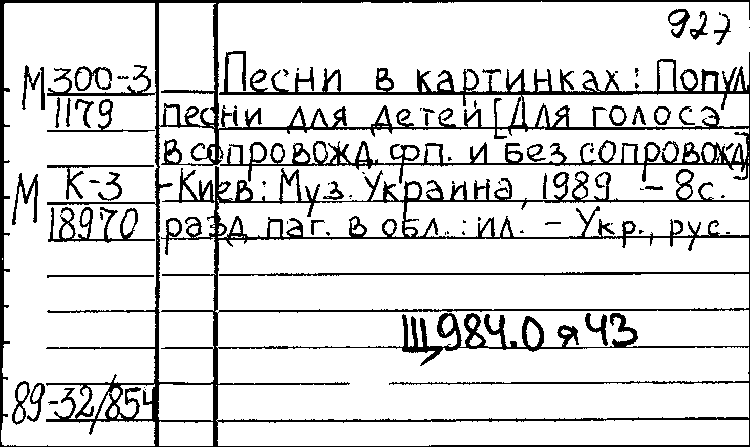 927
М 300-3 Песни в картинках: Попул.
1179 песни для детей [Для голоса
в сопровожд. фп. и без сопровожд]
М К-3 -Киев: Муз. Украина, 1989. - 8с.
18970 разд. паг. в обл.: ил. - Укр., рус.
Щ984.0 я 43
89-32/854